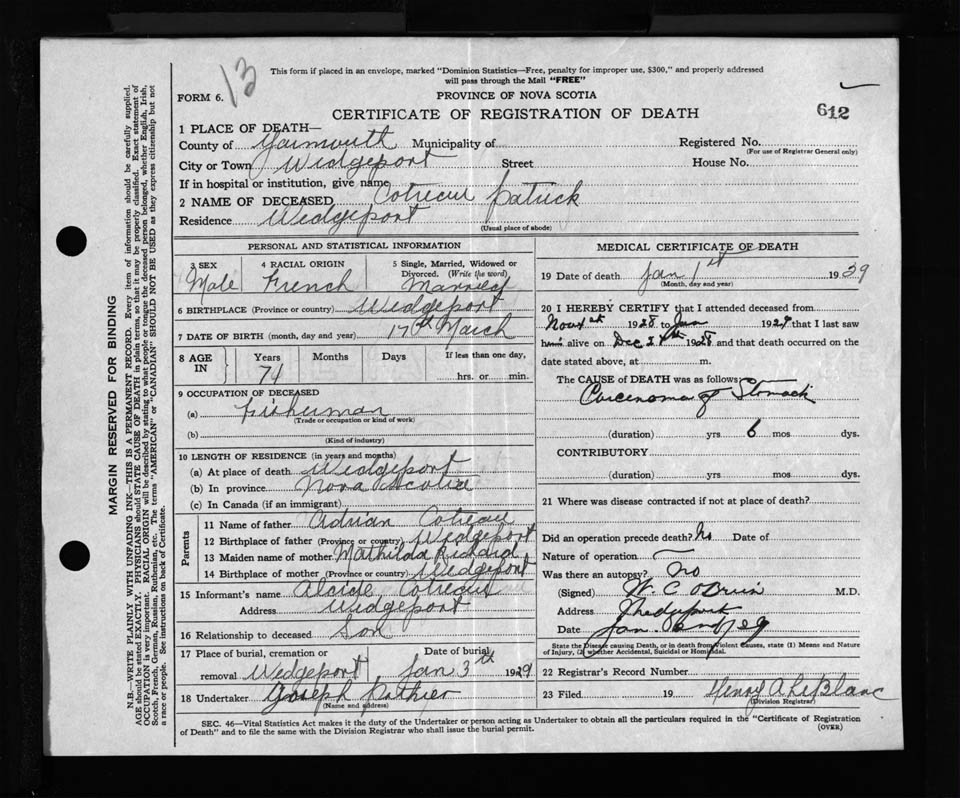 13
This form if placed in an envelope, marked "Dominion Statistics—Free, penalty for improper use, $300," and properly addressed
will pass through the Mail "FREE"
FORM 6.
PROVINCE OF NOVA SCOTIA
612
CERTIFICATE OF REGISTRATION OF DEATH
1 PLACE OF DEATH—
County of Yarmouth Municipality of Registered No.
(For use of Registrar General only)
City or Town Wedgeport Street House No.
If in hospital or institution, give name
2 NAME OF DECEASED Cotreau Patrick
Residence Wedgeport
(Usual place of abode)
PERSONAL AND STATISTICAL INFORMATION
3 SEX 4 RACIAL ORIGIN 5 Single, Married, Widowed or
Divorced. (Write the word)
Male French Married
6 BIRTHPLACE (Province or country) Wedgeport
7 DATE OF BIRTH (month, day and year) 17th March
8 AGE IN Years Months Days If less than one day,
74 hrs. or min.
9 OCCUPATION OF DECEASED
(a) Fisherman
(Trade or occupation or kind of work)
(b)
(Kind of industry)
10 LENGTH OF RESIDENCE (in years and months)
(a) At place of death Wedgeport
(b) In province Nova Scotia
(c) In Canada (if an immigrant)
Parents
11 Name of father Adrian Cotreau
12 Birthplace of father (Province or country) Wedgeport
13 Maiden name of mother Mathilda Richard
14 Birthplace of mother (Province or country) Wedgeport
15 Informant's name Alcide Cotreau
Address Wedgeport
16 Relationship to deceased Son
17 Place of burial, cremation or Date of burial
removal Wedgeport Jan 3th 1929
18 Undertaker Joseph Pothier
(Name and address)
MEDICAL CERTIFICATE OF DEATH
19 Date of death Jan 1st 1939
(Month, day and year)
20 I HEREBY CERTIFY that I attended deceased from
1928 to Jan 1929 that I last saw
him alive on Dec 1928 and that death occurred on the
date stated above, at m.
The CAUSE of DEATH was as follows:
Carcenoma of Stomach
(duration) yrs 6 mos dys.
CONTRIBUTORY
(duration) yrs. mos. dys.
21 Where was disease contracted if not at place of death?
Did an operation precede death? No Date of
Nature of operation
Was there an autopsy? No
(Signed) W. C. O'Brien M.D.
Address Wedgeport
Date Jan. 2nd/29
State the Disease causing Death, or in death from Violent Causes, state (1) Means and Nature
of Injury, (2) whether Accidental, Suicidal or Homicidal.
22 Registrar's Record Number
23 Filed 19 Henry A LeBlanc
(Division Registrar)
SEC. 46—Vital Statistics Act makes it the duty of the Undertaker or person acting as Undertaker to obtain all the particulars required in the "Certificate of Registration
of Death" and to file the same with the Division Registrar who shall issue the burial permit.
(OVER)
MARGIN RESERVED FOR BINDING
N.B.—WRITE PLAINLY WITH UNFADING INK—THIS IS A PERMANENT RECORD. Every item of information should be carefully supplied.
AGE should be stated EXACTLY. PHYSICIANS should STATE CAUSE OF DEATH in plain terms, so that it may be properly classified. Exact statement of
OCCUPATION is very important. RACIAL ORIGIN will be described by stating to what people or tongue the deceased person belonged, whether English, Irish,
Scotch, French, German, Russian, Ruthenian, etc. The terms "AMERICAN" or "CANADIAN" SHOULD NOT BE USED as they express citizenship but not
a race or people. See instructions on back of Certificate.